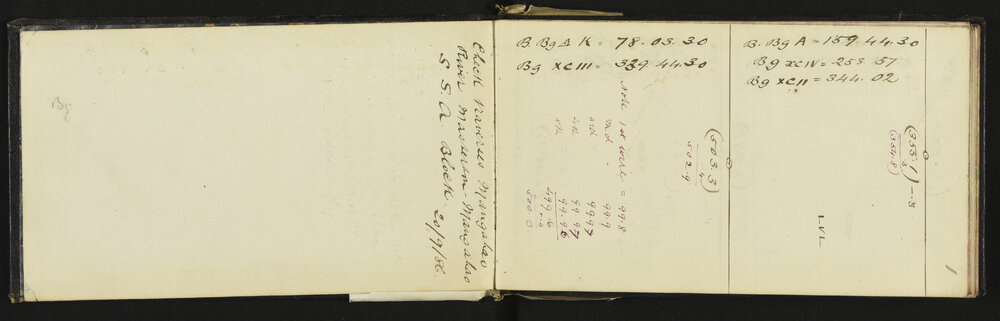 Bg
Check Traverses Mangahao
River Masterton - Mangahao
S. S. A. Block. 20/9/86.
B. Bg Δ K = 78. 03. 30
Bg XCIII = 339 44. 30
Note 1st wire = 99.8
2nd - 99.9
3rd 99.97
4th 99.97
5th 99.96
499.6
500 0
(503.3)
4
502.9
B. Bg A = 159. 44. 30
Bg XCIV = 253 57
Bg XCII = 344. 02
(355.1) - .3
3
(354.8)
LVL
1